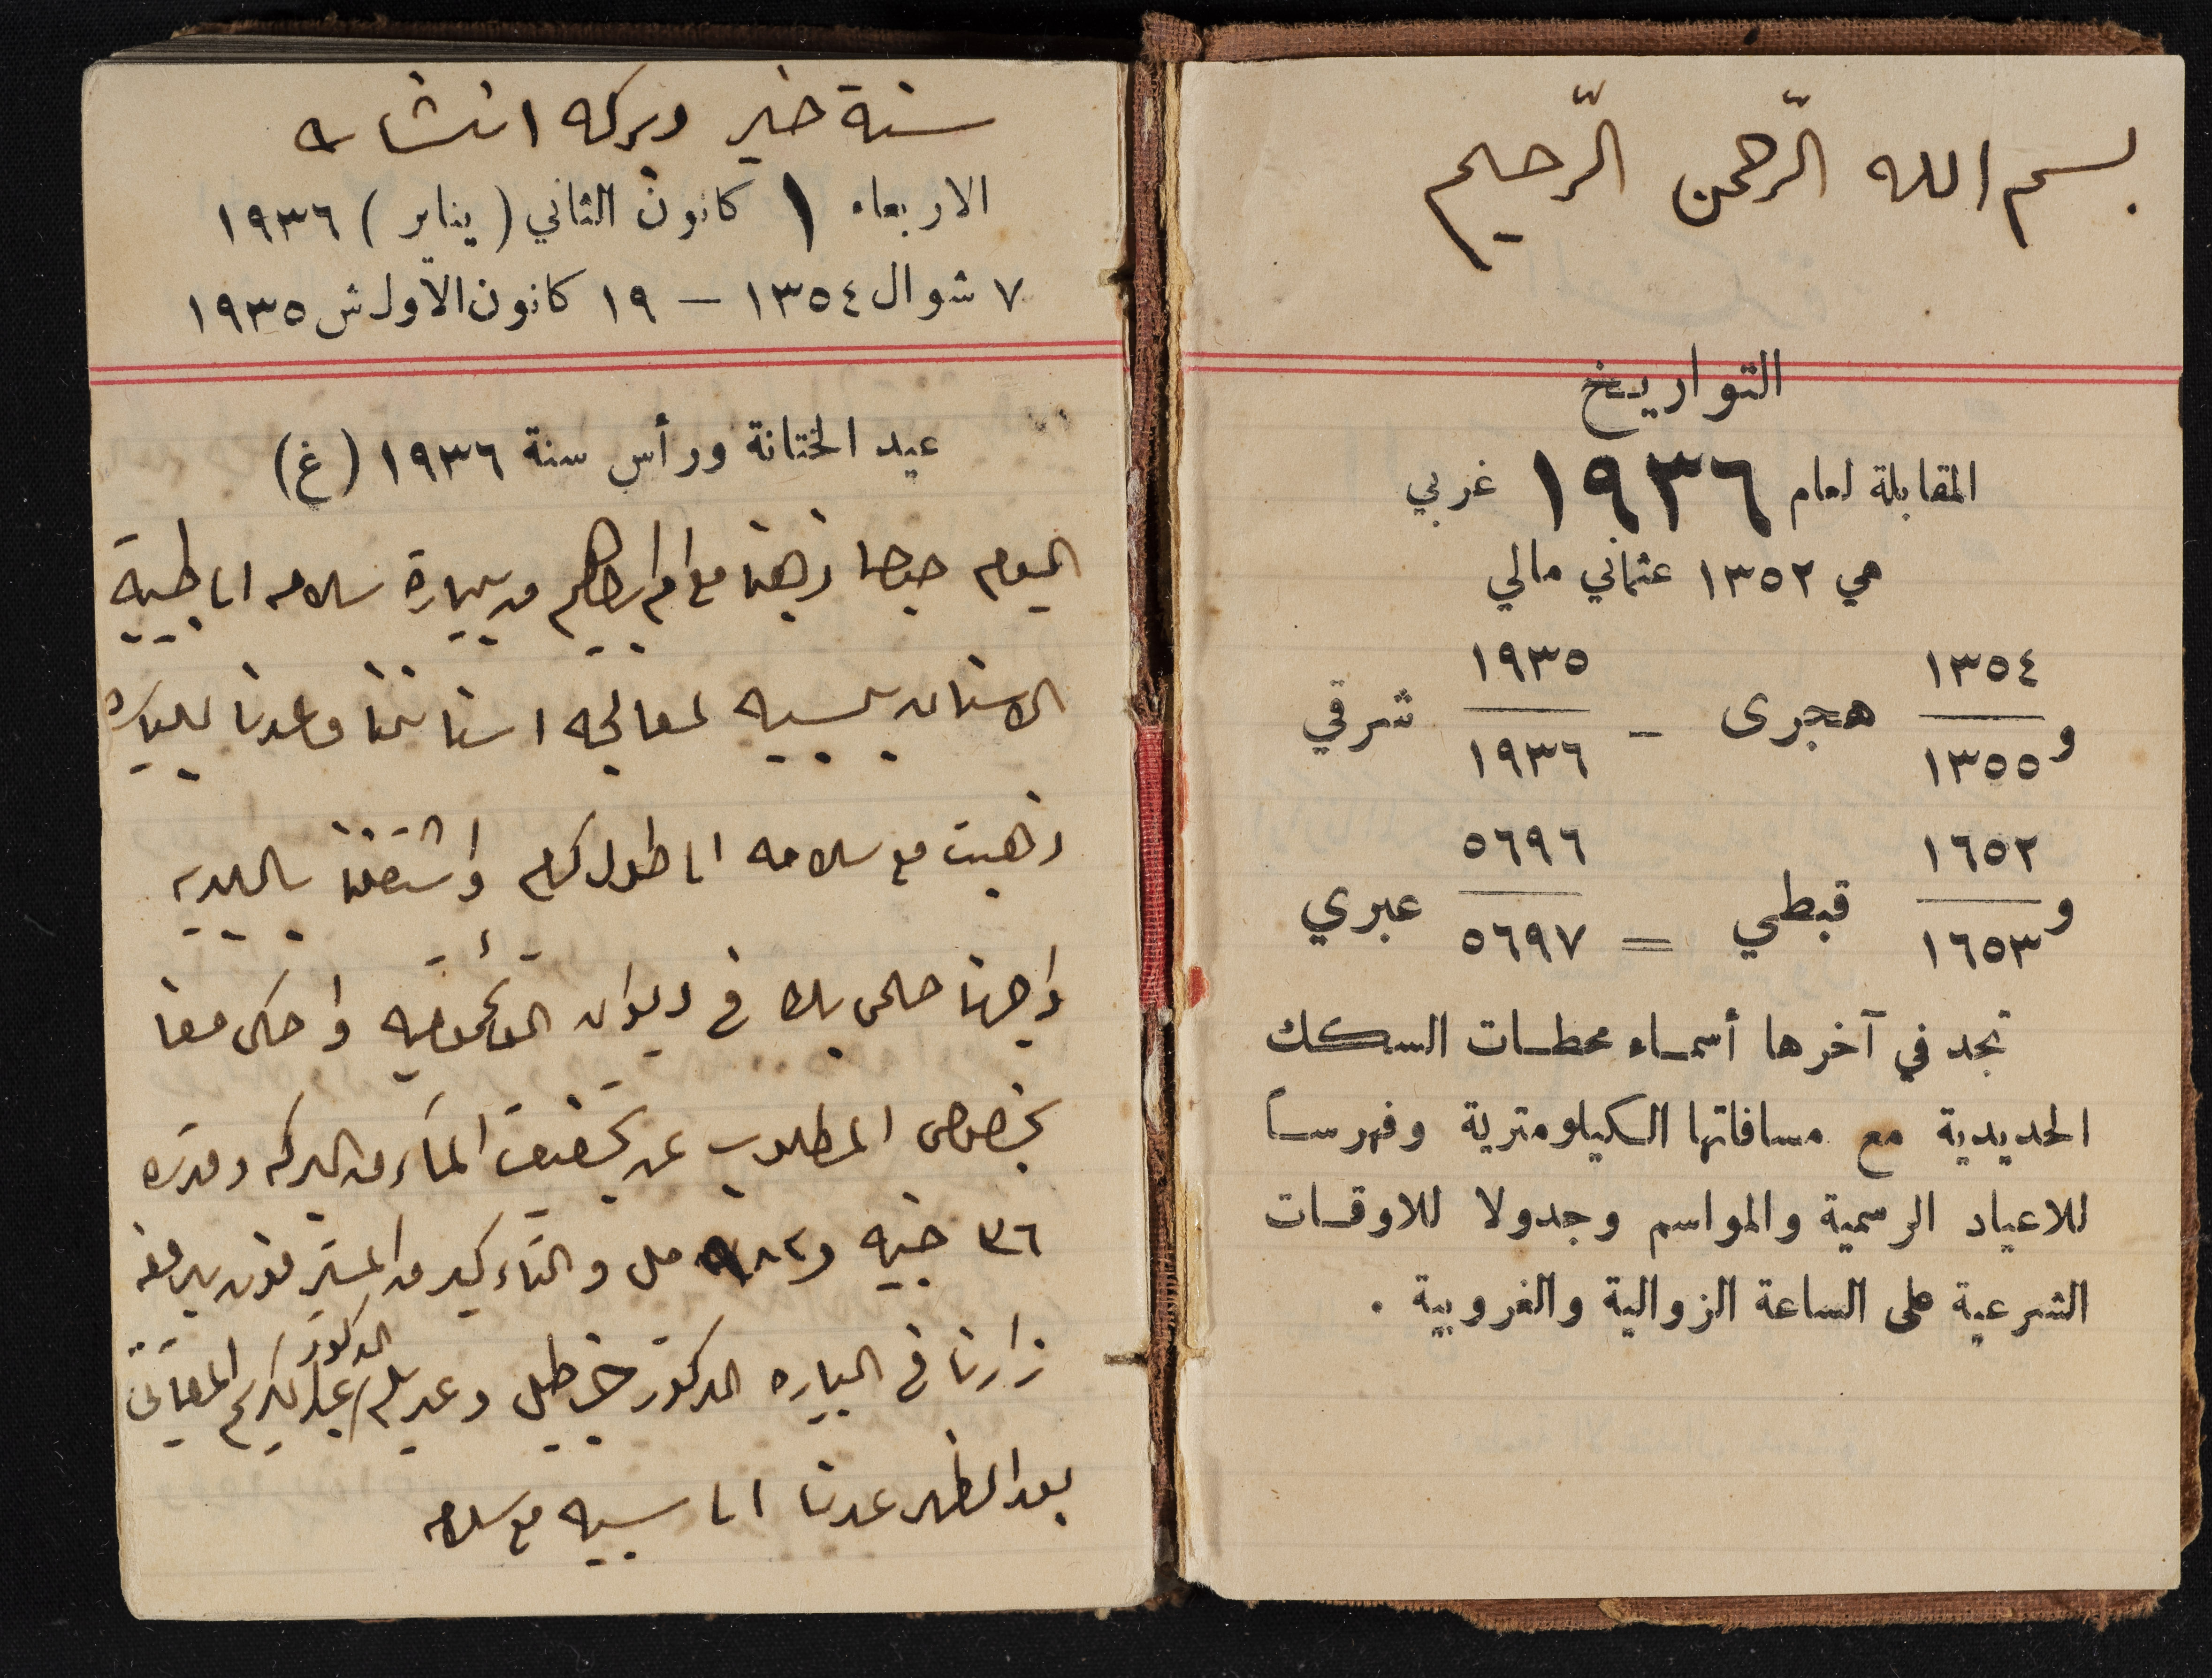 بسم الله الرّحمن الرّحيم
التواريخ
المقابلة لعام ١٩٣٦ غربي
هي ١٣٥٢ عثماني مالي
و ١٣٥٤/١٣٥٥ هجرى - ١٩٣٥/١٩٣٦ شرقي
و ١٦٥٢/١٦٥٣ قبطي = ٥٦٩٦/٥٦٩٧ عبري
تجد في آخرها أسماء محطات السكك
الحديدية مع مسافاتها الكيلومترية وفهرساً
للاعياد الرسمية والمواسم وجدولا للاوقات
الشرعية على الساعة الزوالية والغروبية .
سنة خير وبركه انشاء
الاربعاء ١ كانون الثاني (يناير) ١٩٣٦
٧ شوال ١٣٥٤ – ١٩ كانون الاول ش ١٩٣٥
عيد الختانة ورأس سنة ١٩٣٦ (غ)
اليوم صباحا ذهبنا مع ام ابراهيم سلامه الى طبيبة
الاسنان لمعالجه اسناننا وعدنا للبياره
ذهبت مع سلامه الى طولكرم واشتغلنا بالبلديه
في ديوان واحكى معنا
بخصوص المطلوب عن تجفيف الماء من البركه وقدره
٣٦ جنيه و مل
زارنا في البياره الدكتور الدكتور
بعد الظهر عدنا الى مع سلامه